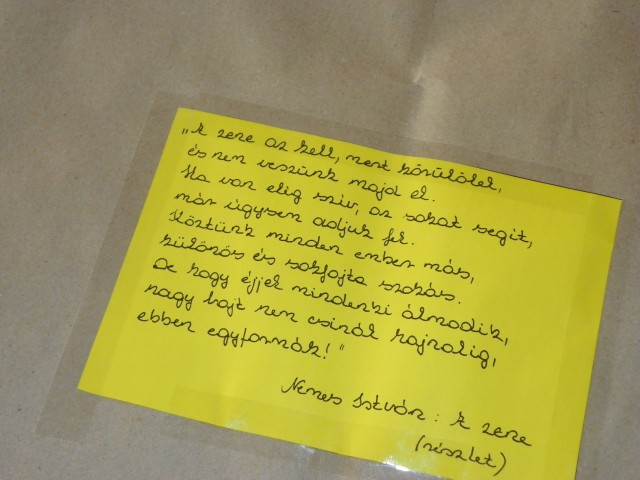 „A zene az kell, mert körülölel,
és nem veszünk majd el.
Ha van elég szív, az sokat segít,
már úgysem adjuk fel.
Köztünk minden ember más,
különös és sokfajta szokás.
De hogy éjjel mindenki álmodik,
nagy bajt nem csinál hajnalig,
ebben egyformák!"
Nemes István: A zene
(részlet)